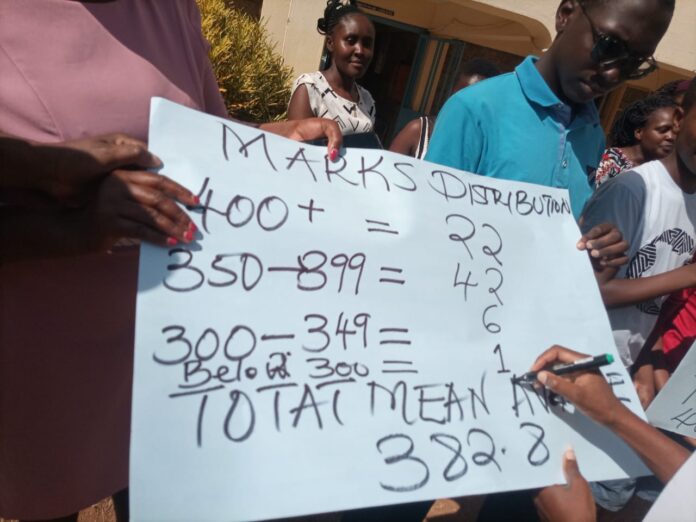 MARKS DISTRIBUTION
400+ = 22
350-399= 42
300-349= 6
Below 300 = 1
TOTAL MEAN
382.8